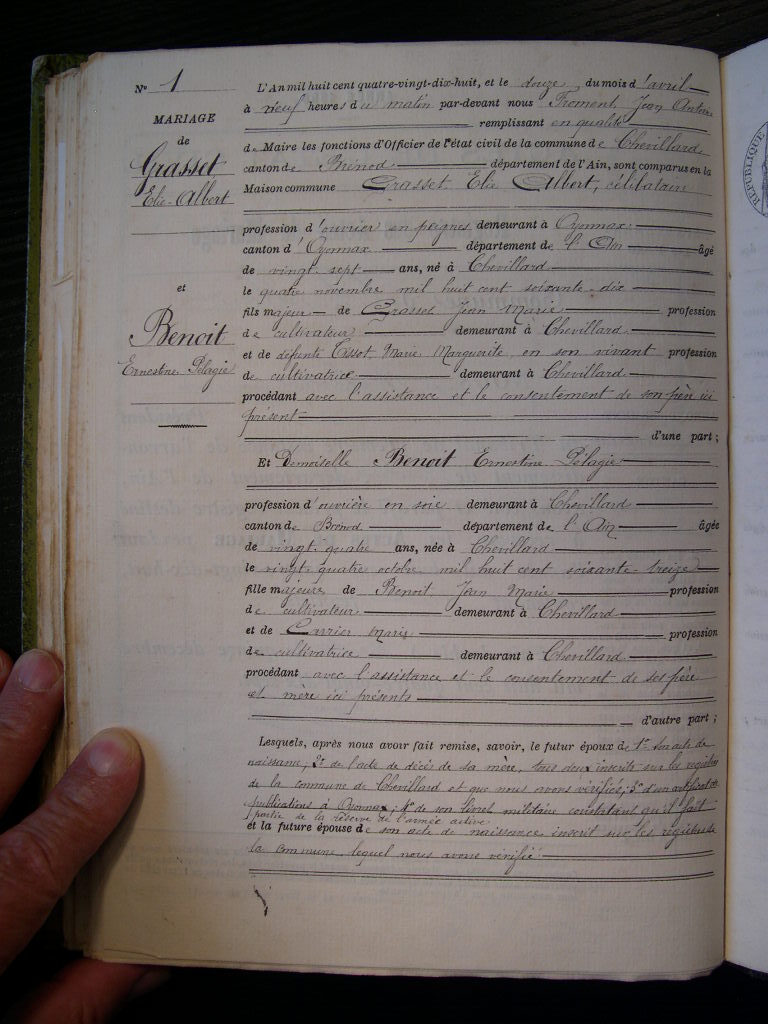 N° 1
MARIAGE
de
Grasset
Elie-Albert
et
Benoit
Ernestine Pélagie
L'An mil huit cent quatre-vingt-dix-huit, et le douze du mois d'avril
à neuf heures du matin par-devant nous Froment, Jean Antoine
remplissant en qualité
de Maire les fonctions d'Officier de l'état civil de la commune de Chevillard
canton de Brénod département de l'Ain, sont comparus en la
Maison commune Grasset Elie Albert, célibataire
profession d'ouvrier en peignes demeurant à Oyonnax
canton d'Oyonnax département de l'Ain âgé
de vingt-sept ans, né à Chevillard
le quatre novembre mil huit cent soixante-dix
fils majeur de Grasset Jean Marie profession
de cultivateur demeurant à Chevillard
et de défunte Tissot Marie Marguerite en son vivant profession
de cultivatrice demeurant à Chevillard
procédant avec l'assistance et le consentement de son père ici
présent
d'une part;
Et Demoiselle Benoit Ernestine Pélagie
profession d'ouvrière en soie demeurant à Chevillard
canton de Brénod département de l'Ain âgée
de vingt-quatre ans, née à Chevillard
le vingt-quatre octobre mil huit cent soixante-treize
fille majeure de Benoit Jean Marie profession
de cultivateur demeurant à Chevillard
et de Carrier Marie profession
de cultivatrice demeurant à Chevillard
procédant avec l'assistance et le consentement de ses père
et mère ici présents
d'autre part;
Lesquels, après nous avoir fait remise, savoir, le futur époux de 1° son acte de
naissance; 2° de l'acte de décès de sa mère, tous deux inscrits sur les registres
de la commune de Chevillard et que nous avons vérifiés; 3° d'un certificat de
publications à Oyonnax; 4° de son livret militaire constatant qu'il fait
partie de la réserve de l'armée active
et la future épouse de son acte de naissance inscrit sur les registres de
la commune, lequel nous avons vérifié
RÉPUBLIQUE